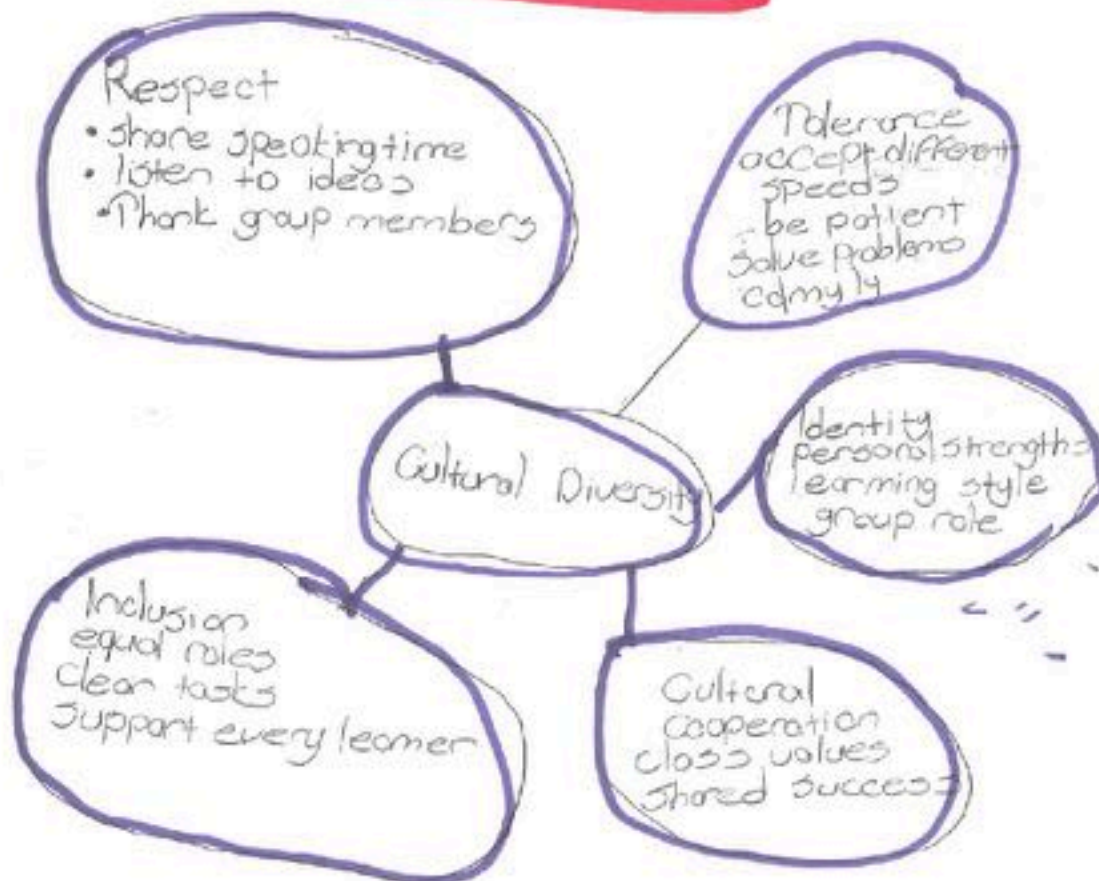 Respect
• share speaking time
• listen to ideas
• Thank group members
Tolerance
accept different
speeds
be patient
solve problems
calmyly
Cultural Diversity
Identity
personal strengths
learning style
group role
Inclusion
equal roles
clear tasks
Support every learner
Cultural
cooperation
class values
shared success